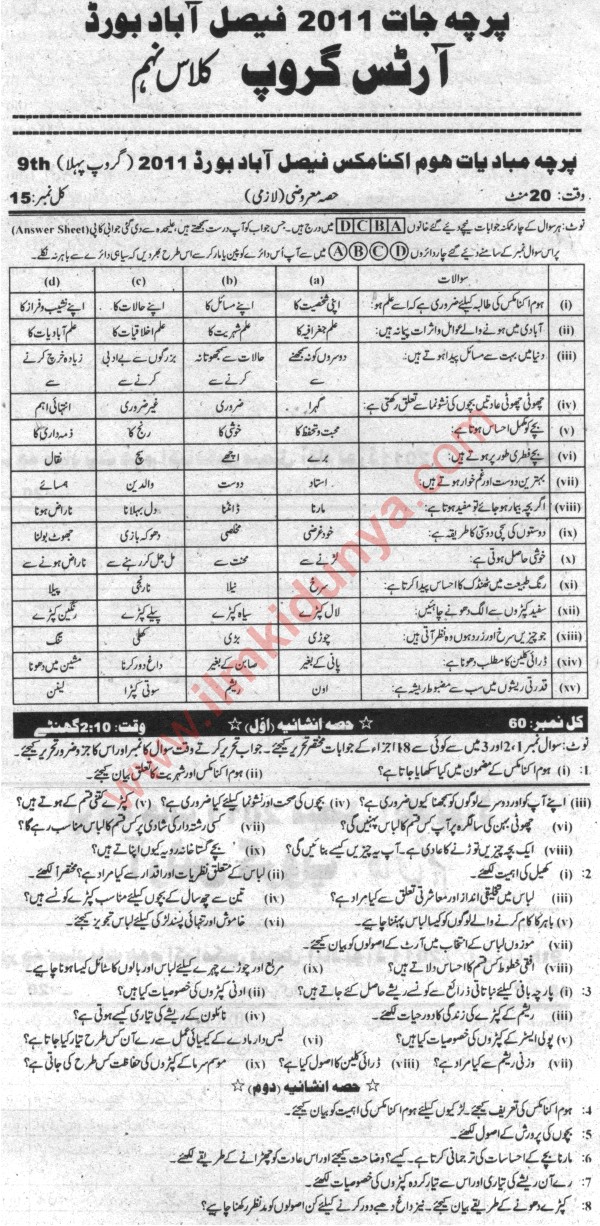 پرچہ جات 2011 فیصل آباد بورڈ
آرٹس گروپ کلاس نہم
پرچہ مبادیات ھوم اکنامکس فیصل آباد بورڈ 2011 (گروپ پہلا) 9th
وقت: 20 منٹ حصہ معروضی (لازمی) کل نمبر: 15
نوٹ: ہر سوال کے چار ممکنہ جوابات نیچے دیئے گئے خانوں D C B A میں درج ہیں۔ جس جواب کو آپ درست سمجھتے ہیں، علیحدہ سے دی گئی جوابی کاپی (Answer Sheet)
پر اس سوال نمبر کے سامنے دیئے گئے چار دائروں A B C D میں سے آپ اُس دائرے کو پین یا مارکر سے اس طرح بھر دیں کہ سیاہی دائرے سے باہر نہ نکلے۔
سوالات (a) (b) (c) (d)
(i) ہوم اکنامکس کی طالبہ کیلئے ضروری ہے کہ اسے علم ہو: اپنی شخصیت کا اپنے مسائل کا اپنے حالات کا اپنے نشیب و فراز کا
(ii) آبادی میں ہونے والے عوامل و اثرات پیمانہ ہیں: علم جغرافیہ کا علم شہریت کا علم اخلاقیات کا علم آبادیات کا
(iii) دنیا میں بہت سے مسائل پیدا ہوتے ہیں: دوسروں کو نہ سمجھنے سے حالات سے سمجھوتا نہ کرنے سے بزرگوں سے بے ادبی کرنے سے زیادہ خرچ کرنے سے
(iv) چھوٹی چھوٹی عادتیں بچوں کی نشوونما سے تعلق رکھتی ہے: گہرا ضروری غیر ضروری انتہائی اہم
(v) بچے کو مکمل احساس ہوتا ہے: محبت و تحفظ کا خوشی کا رنج کا ذمہ داری کا
(vi) بچے فطری طور پر ہوتے ہیں: برے اچھے سچ نقال
(vii) بہترین دوست اور غم خوار ہوتے ہیں: استاد دوست والدین ہمسائے
(viii) اگر بچہ بیمار ہو جائے تو مفید ہوتا ہے: مارنا ڈانٹنا دل بہلانا ناراض ہونا
(ix) دوستوں کی سچی دوستی کا طریقہ ہے: خود غرضی مخلصی دھوکہ بازی جھوٹ بولنا
(x) خوشی حاصل ہوتی ہے: لڑنے سے محنت سے مل جل کر رہنے سے ناراض ہونے سے
(xi) رنگ طبیعت میں ٹھنڈک کا احساس پیدا کرتا ہے: سرخ نیلا نارنجی پیلا
(xii) سفید کپڑوں سے الگ دھونے چاہئیں: لال کپڑے سیاہ کپڑے پیلے کپڑے رنگین کپڑے
(xiii) جو چیزیں سرخ اور زرد ہوں وہ نظر آتی ہیں: چوڑی بڑی کھلی تنگ
(xiv) ڈرائی کلین کا مطلب دھونا ہے: پانی کے بغیر صابن کے بغیر داغ دور کرنا مشین میں دھونا
(xv) قدرتی ریشوں میں سب سے مضبوط ریشہ ہے: اون ریشم سوتی کپڑا لینن
کل نمبر: 60 ☆ حصہ انشائیہ (اوّل) ☆ وقت: 2:10 گھنٹے
نوٹ: سوال نمبر 1، 2 اور 3 میں سے کوئی سے 18 اجزاء کے جوابات مختصر تحریر کیجئے۔ جواب تحریر کرتے وقت سوال کا نمبر اور اس کا جز و ضرور تحریر کیجئے۔
1: (i) ہوم اکنامکس کے مضمون میں کیا سکھایا جاتا ہے؟ (ii) ہوم اکنامکس اور شہریت کا تعلق بیان کیجئے۔
(iii) اپنے آپ کو اور دوسرے لوگوں کو سمجھنا کیوں ضروری ہے؟ (iv) بچوں کی صحت اور نشوونما کیلئے کیا ضروری ہے؟ (v) کپڑے کتنی قسم کے ہوتے ہیں؟
(vi) چھوٹی بہن کی سالگرہ پر آپ کس قسم کا لباس پہنیں گی؟ (vii) کسی رشتہ داری کی شادی پر کس قسم کا لباس مناسب رہے گا؟
(viii) ایک بچہ چیزیں توڑنے کا عادی ہے۔ آپ یہ چیزیں کیسے بتائیں گی؟ (ix) بچے گستاخانہ رویہ کیوں اپناتے ہیں؟
2: (i) کھیل کی اہمیت لکھئے۔ (ii) لباس کے متعلق نظریات اور اقدار سے کیا مراد ہے؟ مختصراً لکھئے۔
(iii) لباس میں تخلیقی انداز اور معاشرتی تعلق سے کیا مراد ہے؟ (iv) تین سے چھ سال کے بچوں کیلئے مناسب کپڑے کونسے ہیں؟
(v) باہر کا کام کرنے والے لوگوں کو کیسا لباس پہننا چاہیے؟ (vi) خاموش اور تنہائی پسند لڑکی کیلئے لباس تجویز کیجئے۔
(vii) موزوں لباس کے انتخاب میں آرٹ کے اصولوں کو بیان کیجئے۔
(viii) افقی خطوط کس قسم کا احساس دلاتے ہیں؟ (ix) مربع اور چوڑے چہرے کیلئے لباس اور بالوں کا سٹائل کیسا ہونا چاہیے۔
3: (i) پارچہ بانی کیلئے نباتاتی ذرائع سے کونسے ریشے حاصل کئے جاتے ہیں؟ (ii) اونی کپڑوں کی خصوصیات کیا ہیں؟
(iii) ریشم کے کپڑے کی زندگی کا دور حیات لکھئے۔ (iv) نائلون کے ریشے کی تیاری کیسے ہوتی ہے؟
(v) پولی ایسٹر کے کپڑوں کی خصوصیات کیا ہیں؟ (vi) لیس دار مادے کے کیمیائی عمل سے رے آن کس طرح تیار کیا جاتا ہے؟
(vii) وزنی ریشم سے کیا مراد ہے؟ (viii) ڈرائی کلین کا اصول کیا ہے؟ (ix) موسم سرما کے کپڑوں کی حفاظت کس طرح کی جاتی ہے؟
☆ حصہ انشائیہ (دوم) ☆
4: ہوم اکنامکس کی تعریف کیجئے۔ لڑکیوں کیلئے ہوم اکنامکس کی اہمیت کو بیان کیجئے۔
5: بچوں کی پرورش کے اصول لکھئے۔
6: مارنا بچے کے احساسات کی ترجمانی کرتا ہے۔ کیسے؟ وضاحت کیجئے اور اس عادت کو چھڑانے کے طریقے لکھئے۔
7: رے آن ریشے کی تیاری اور اس سے تیار کردہ کپڑوں کی خصوصیات لکھئے۔
8: کپڑے دھونے کے طریقے بیان کیجئے۔ نیز داغ دھبے دور کرنے کیلئے کن اصولوں کو مد نظر رکھنا چاہیے؟
www.ilmkidunya.com